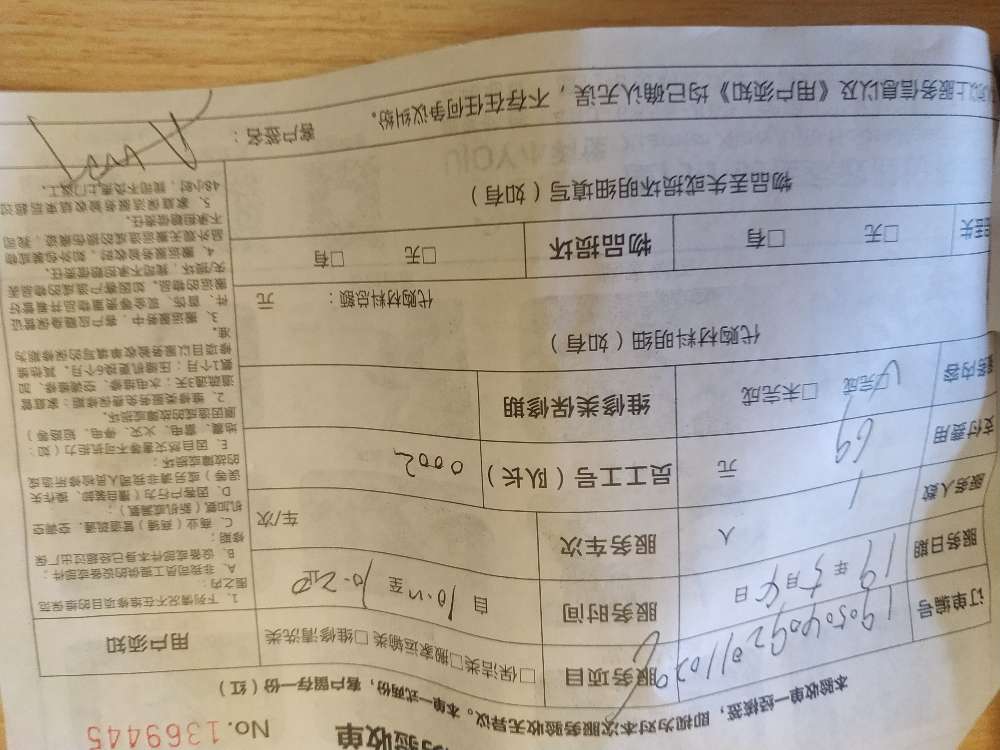 验收单 No. 1369445
本验收单一经核签，即视为对本次服务验收无异议。本单一式两份，客户留存一份（红）
订单编号 服务项目 □保洁类□搬家运输类□维修清洗类 用户须知
服务日期 19年5月4日 服务时间 自 至
服务人数 1 人 服务车次 车/次
支付费用 69 元 员工工号（队长） 0002
□完成 □未完成 维修类保修期
代购材料明细（如有）
代购材料总额： 元
□无 □有 物品损坏 □无 □有
物品丢失或损坏明细填写（如有）
1、下列情况不在维修项目的维保范
围之内：
A、非我司员工提供的设备或部件；
B、设备或部件本身已经超过出厂保
修期；
C、商业（商铺）管道疏通、空调空
机加氟（新机或漏氟）；
D、因客户行为（擅自装卸、操作失
误等）或另请非我司人员检修所造成
的故障或损坏；
E、因自然灾害等不可抗拒力（如：
地震、雷电、火灾、停电、短路等）
原因造成的故障或损坏。
2、维修类服务免费保修期：家庭管
道疏通3天；水电维修、空调维修、加
氟1个月；压缩机更换6个月。其他维
修项目以服务验收单填写的保修期为
准。
3、搬运服务中，客户应随身保管证
件、首饰、现金等贵重物品并看管好
搬运的物品。如因客户造成的物品丢
失/损坏，我司不承担赔偿责任。
4、搬运服务验收时，如外包装或物
品外观无搬运造成的损伤痕迹，我司
不承担赔偿责任。
5、家庭保洁服务验收结束后超过
48小时，我司不负责上门返工。
以上服务信息以及《用户须知》均已确认无误，不存在任何争议纠纷。
客户签名：